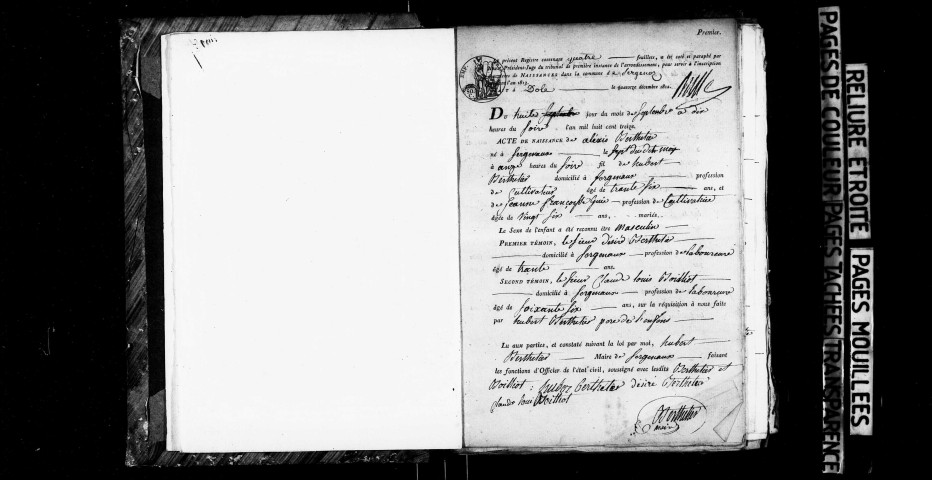 Premier.
présent Registre contenant quatre feuillets, a été coté et paraphé par
Président-Juge du tribunal de première instance de l'arrondissement, pour servir à l'inscription
de NAISSANCES dans la commune de Sergenon
l'an 1813.
A Dole le quatorze décembre 1812.
Du huite jour du mois de Septembre a dix
heures du soire l'an mil huit cent treize.
ACTE DE NAISSANCE de alexis Berthelier
né à Sergenaux le Sept du dit mois
à onze heures du soire fil de hubert
Berthelier domicilié à Sergenaux profession
de Cultivateur âgé de trante six ans, et
de Jeanne francoise profession de Cultivatrice
âgée de vingt six ans, mariés.
Le Sexe de l'enfant a été reconnu être masculin
PREMIER TÉMOIN, le sieur désiré Berthelier
domicilié à Sergenaux profession de laboureure
âgé de trante ans.
SECOND TÉMOIN, le sieur Claude louis Boilhot
domicilié à Sergenaux profession de laboureure
âgé de soixante six ans, sur la réquisition à nous faite
par hubert Berthelier pere de l'enfans
Lu aux parties, et constaté suivant la loi par moi, hubert
Berthelier Maire de Sergenaux faisant
les fonctions d'Officier de l'état civil, soussigné avec lesdits Berthelier et
Boilhot : Berthelier désiré Berthelier
Claude louis Boilhot
Berthelier
maire
PAGES DE COULEUR PAGES TACHÉES TRANSPARENCE
RELIURE ETROITE
PAGES MOUILLEES